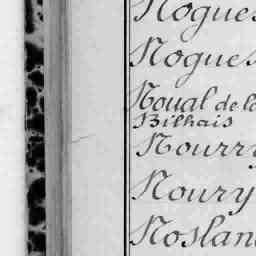 Nogues
Nogues
Noual de la
Bilhais
Nourry
Noury
Noslan